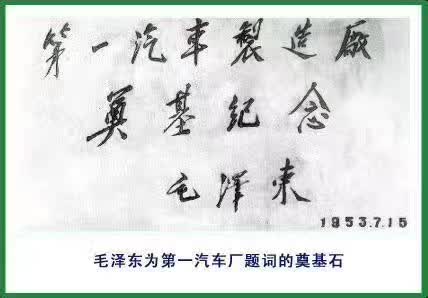 第一汽車製造厰
奠基纪念
毛澤東
1953.7.15
毛泽东为第一汽车厂题词的奠基石